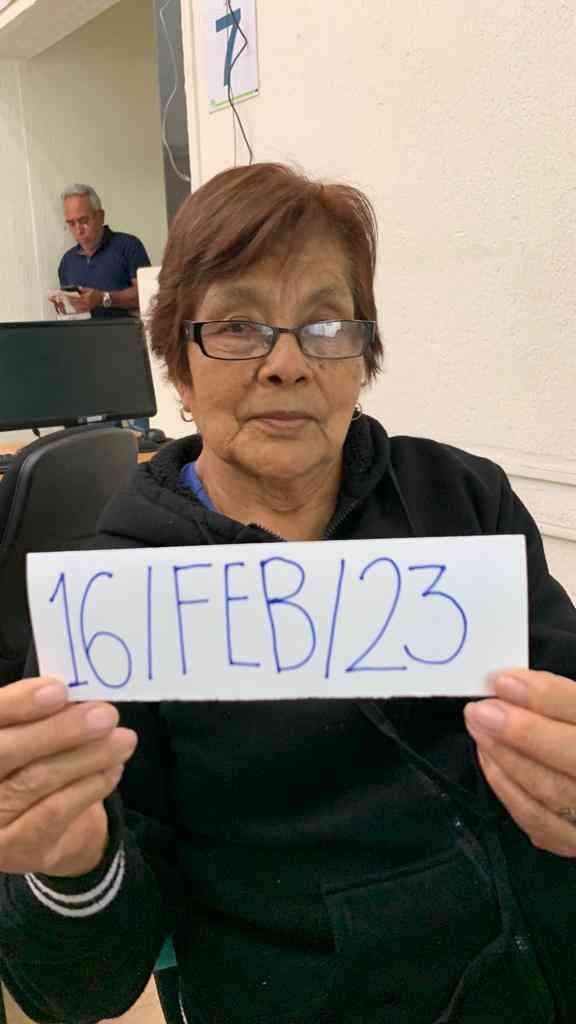 7
16/FEB/23